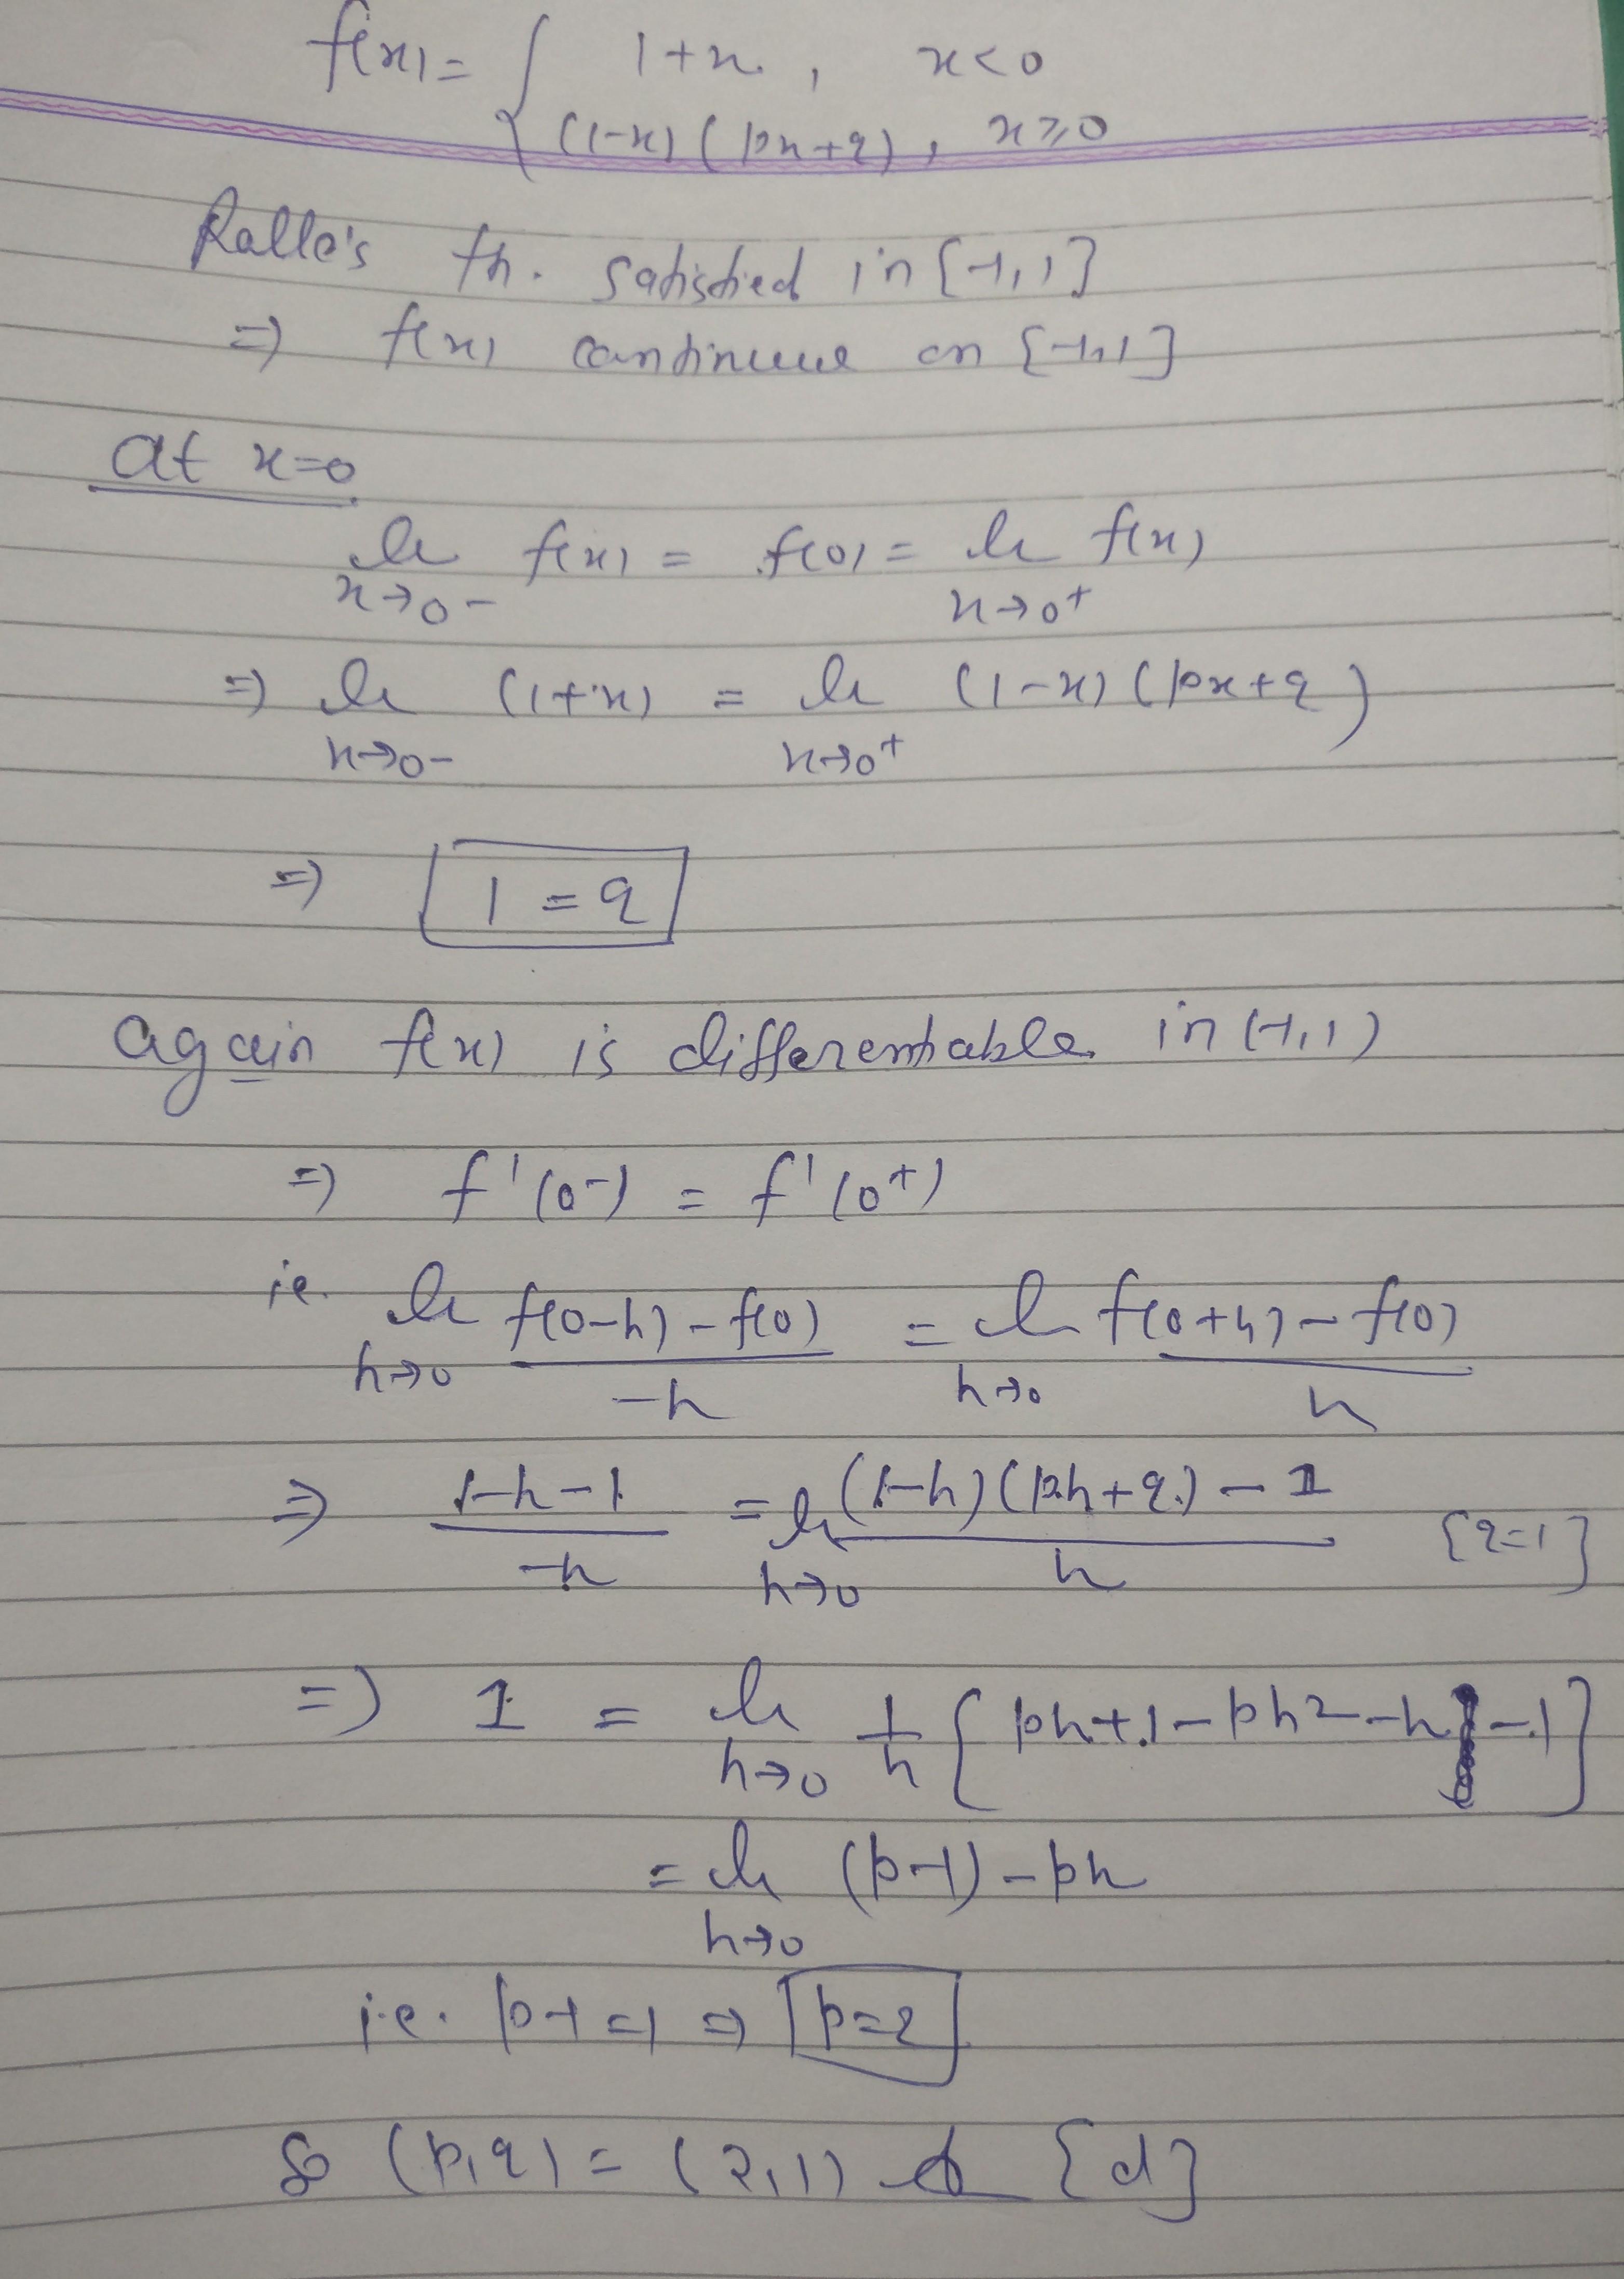 f(x) = { 1+x , x<0
(1-x) (px+q) , x≥0
Rolle's th. satisfied in [-1,1]
⇒ f(x) continuous on [-1,1]
at x=0
lim f(x) = f(0) = lim f(x)
x→0- x→0+
⇒ lim (1+x) = lim (1-x) (px+q)
x→0- x→0+
⇒ 1 = q
again f(x) is differentiable in (-1,1)
⇒ f'(0-) = f'(0+)
i.e. lim f(0-h) - f(0) = lim f(0+h) - f(0)
h→0 -h h→0 h
⇒ 1-h-1 = lim (1-h) (ph+q) - 1 {q=1}
-h h→0 h
⇒ 1 = lim 1/h { ph+1-ph²-h -1 }
h→0
= lim (p-1) - ph
h→0
i.e. p-1 = 1 ⇒ p=2
So (p,q) = (2,1) {d}